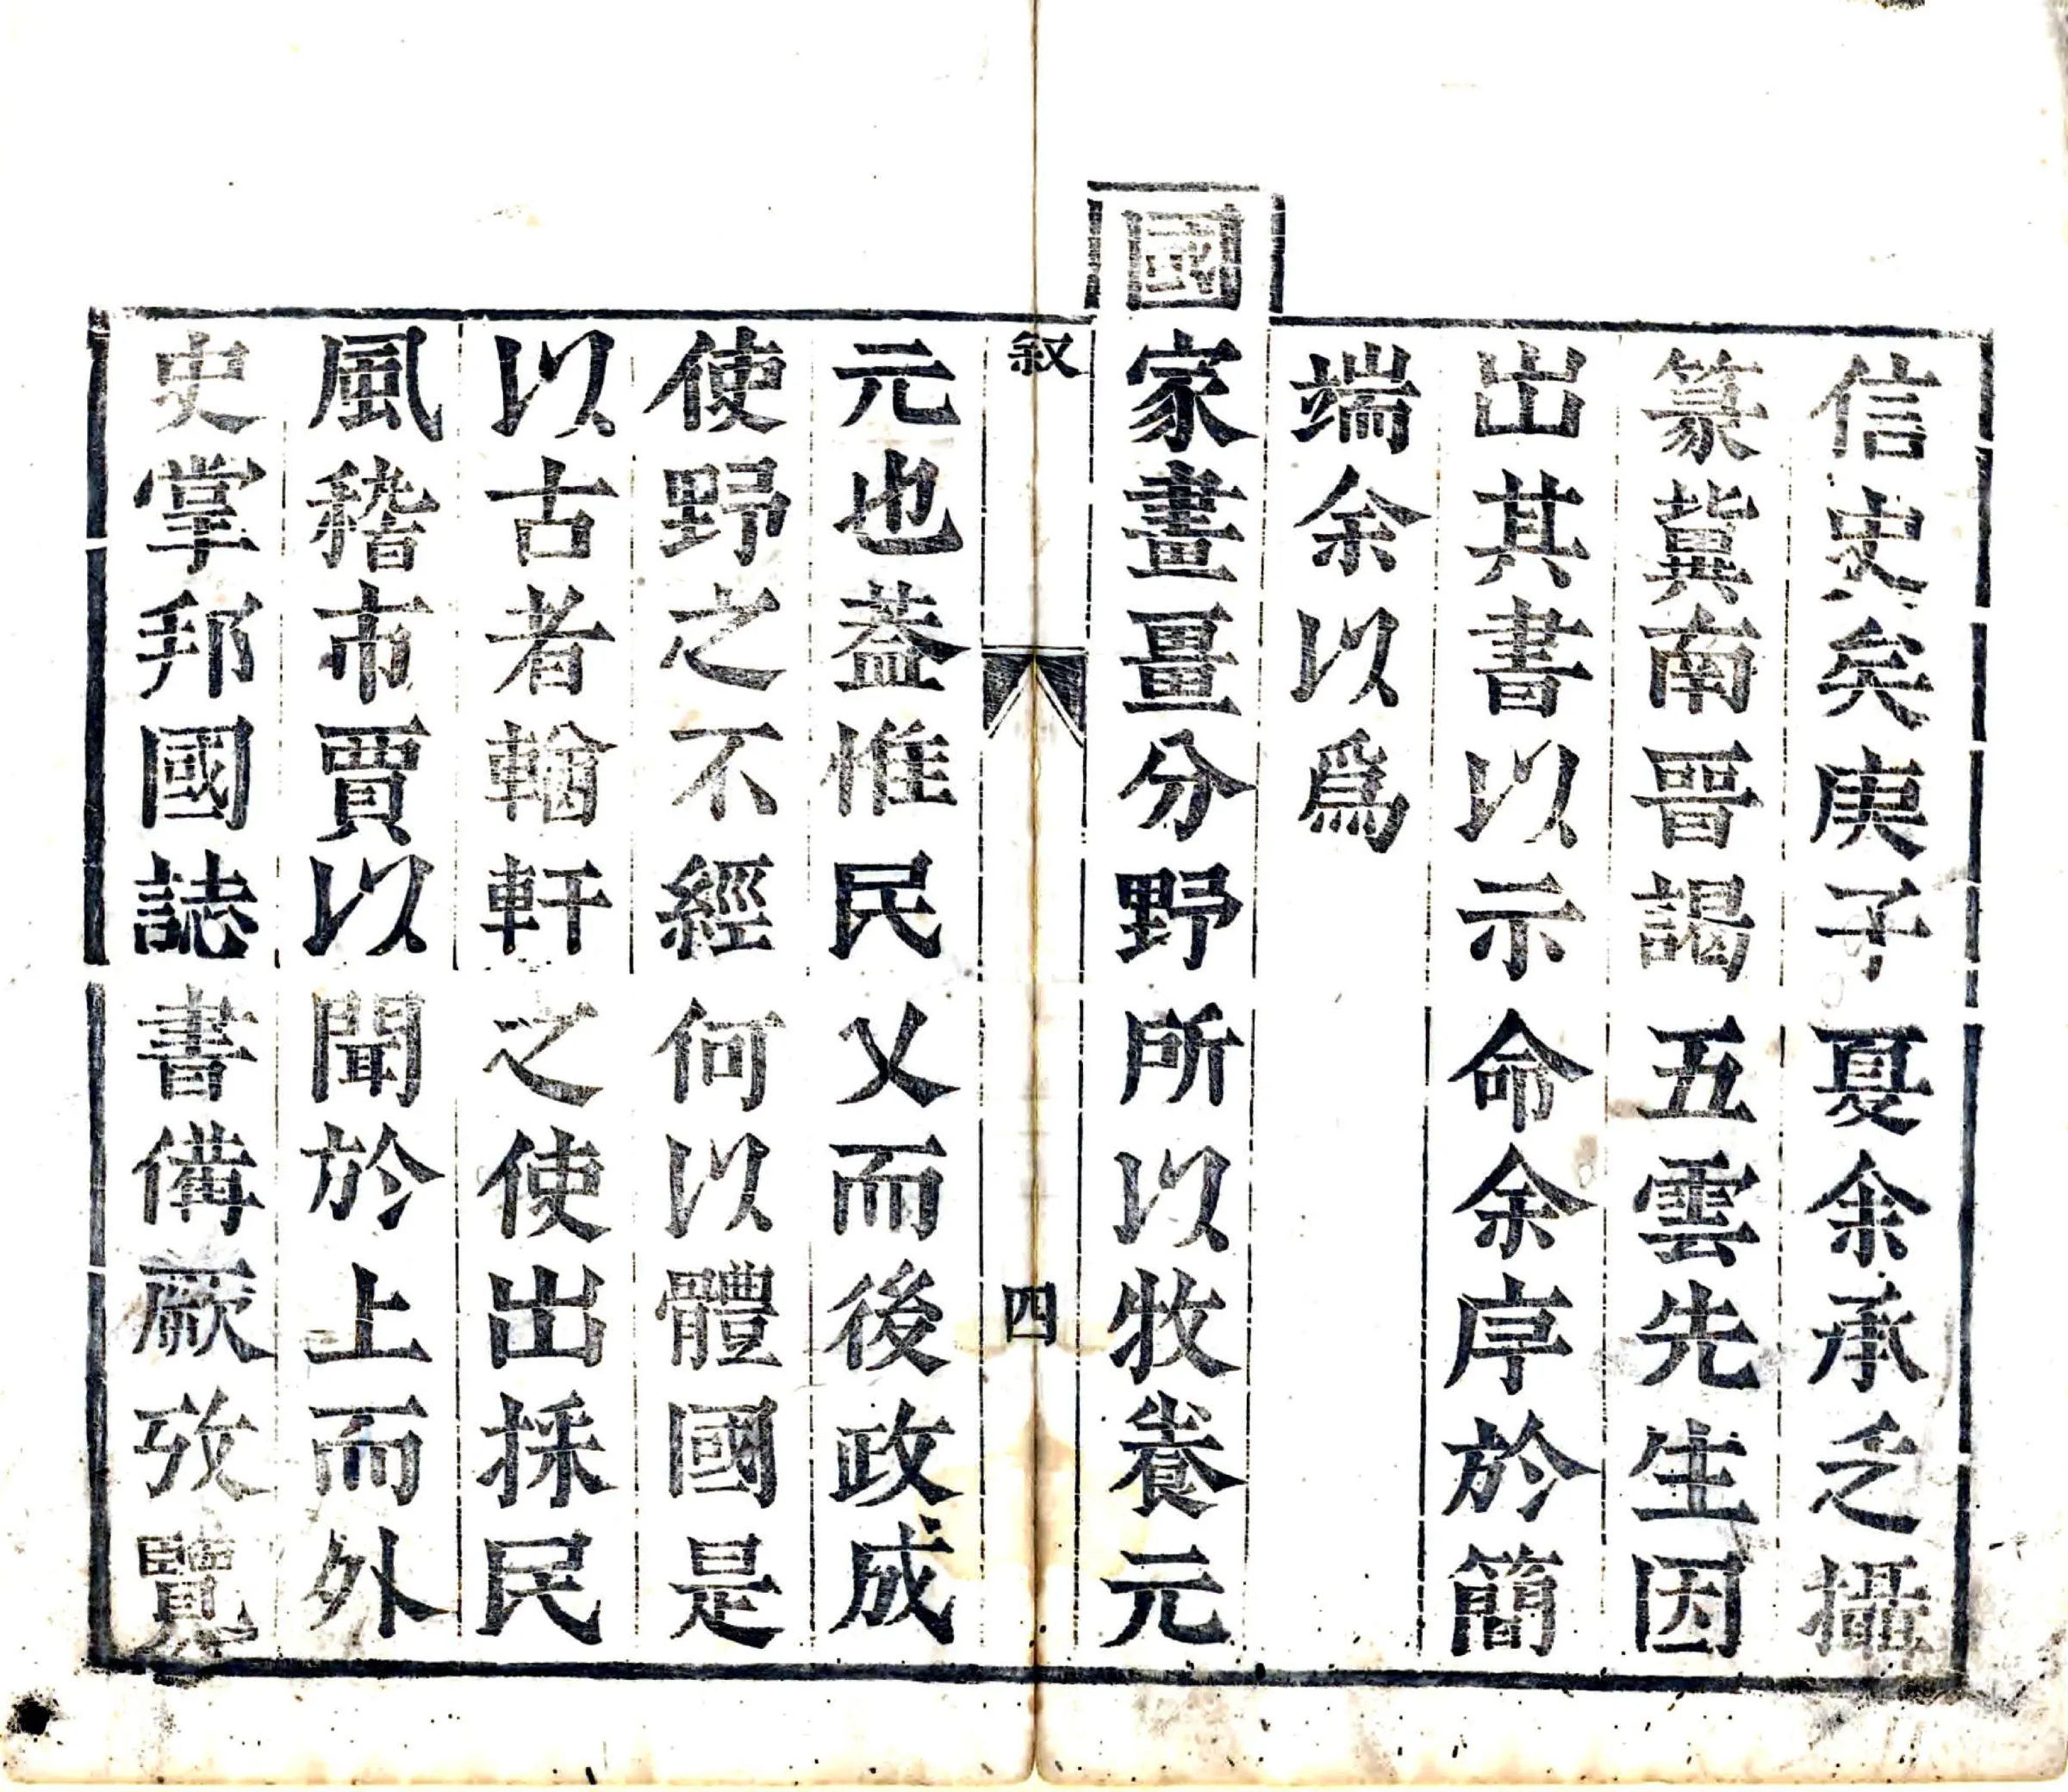 信史矣庚子夏余承乏攝
篆冀南晉謁五雲先生因
出其書以示命余序於簡
端余以爲
國家畫畺分野所以牧養元
叙
四
元也葢惟民乂而後政成
使野之不經何以體國是
以古者輶軒之使出採民
風稽市賈以聞於上而外
史掌邦國誌書備厥攷覽